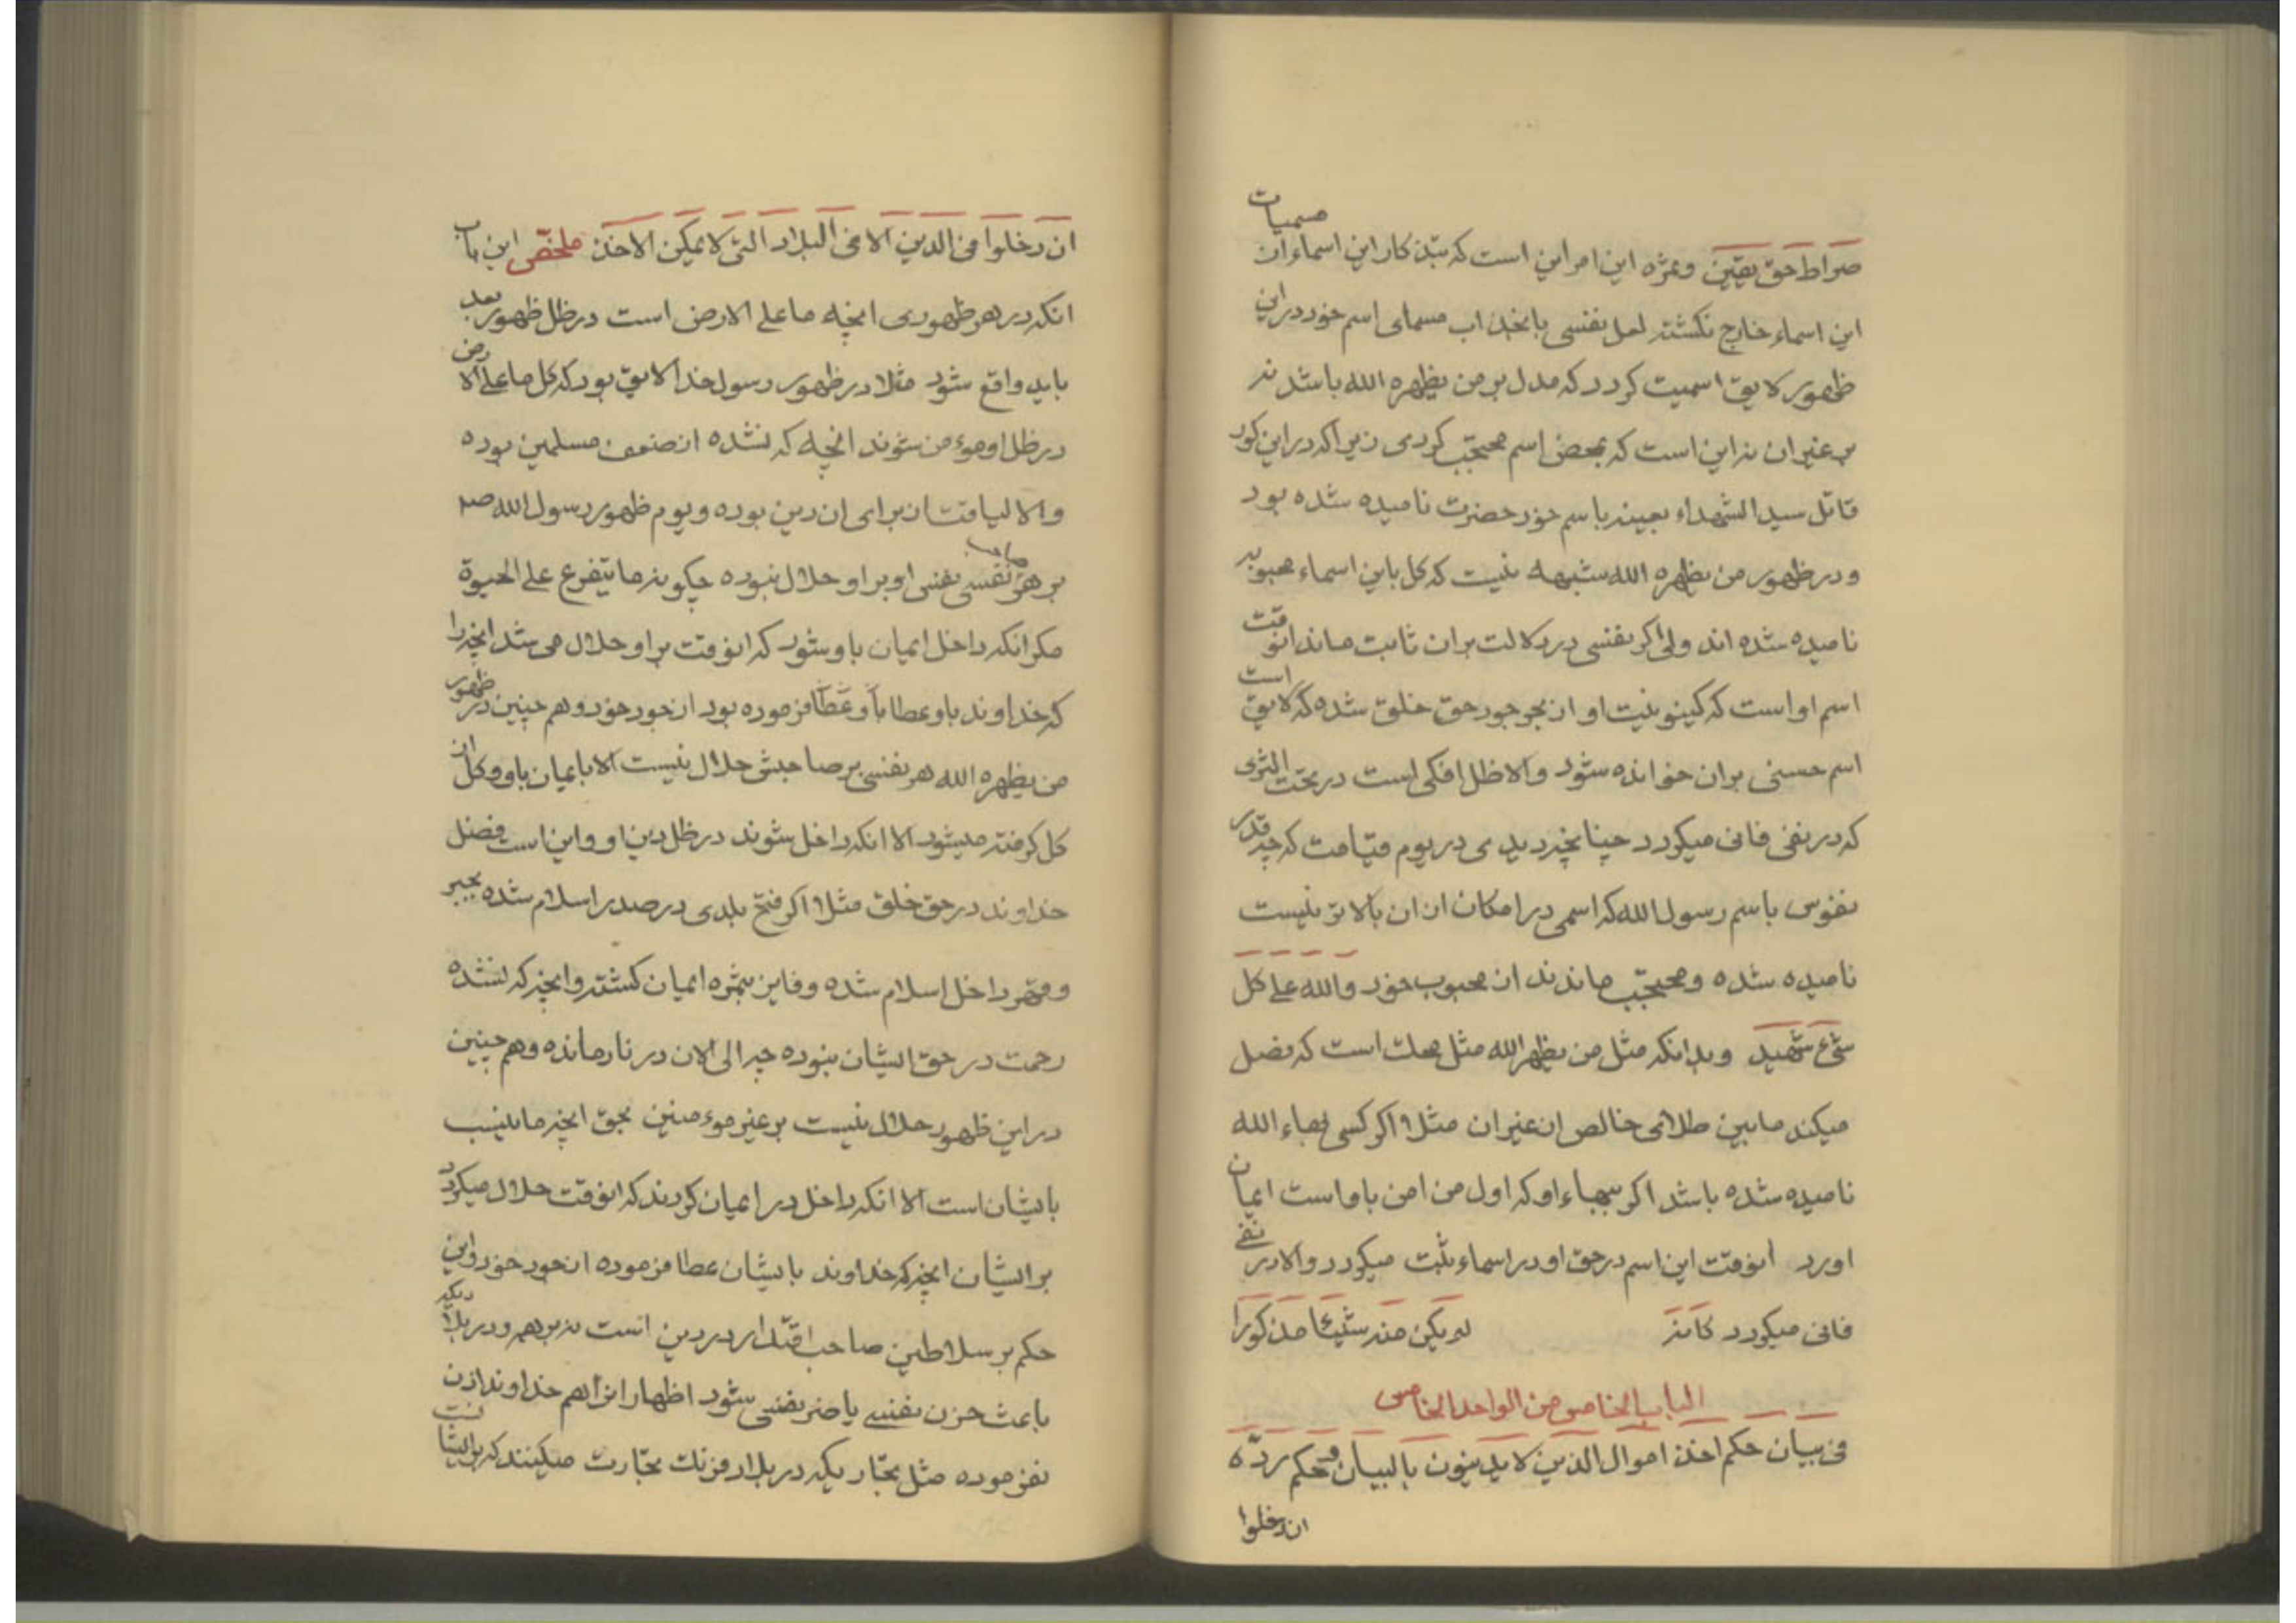 صراط حق یقین و ثمره این امر این است که بتذکار این اسماء از مسمیات
این اسماء خارج نگشته لعل نفسی بانجذاب مسمای اسم خود در این
ظهور لایق اسمیت گردد که مدل بر من یظهره الله باشد نه
بر غیر ان نه این است که بمحض اسم محتجب گردی زیرا که در این کور
قاتل سید الشهداء بعینه باسم خود حضرت نامیده شده بود
و در ظهور من یظهره الله شبهه نیست که کل باین اسماء محبوبه
نامیده شده اند ولی اگر نفسی در دلالت بران ثابت ماند انوقت
اسم او است که کینونیت او از بحر جود حق خلق شده که لایق است
اسم حسنی بران خوانده شود والا ظل افکی است در تحت الثری
که در نفی فانی میگردد چنانچه دیدی در یوم قیامت که چه قدر
نفوس باسم رسول الله که اسمی در امکان از ان بالاتر نیست
نامیده شده و محتجب ماندند از محبوب خود والله علی کل
شیء شهید و بدانکه مثل من یظهر الله مثل محک است که فصل
میکند مابین طلای خالص از غیر ان مثلا اگر کسی بهاء الله
نامیده شده باشد اگر ببهاء او که اول من امن باو است ایمان
اورد انوقت این اسم در حق او در اسماء ثبت میگردد والا در نفی
فانی میگردد کانه لم یکن منه شیئا مذکورا
الباب الخامس من الواحد الخامس
فی بیان حکم اخذ اموال الذین لا یدینون بالبیان و حکم رده
ان دخلوا
ان دخلوا فی الدین الا فی البلاد التی لا یمکن الاخذ ملخص این باب
انکه در هر ظهوری انچه ما علی الارض است در ظل ظهور بعد
باید واقع شود مثلا در ظهور رسول خدا لایق بود که کل ما علی الارض
در ظل او موءمن شوند انچه که نشده از ضعف مسلمین بوده
والا لیاقتشان برای ان دین بوده و یوم ظهور رسول الله صم
بر هر نفسی نفس او بر او حلال نبوده چگونه ما یتفرع علی الحیوة
مگر انکه داخل ایمان باو شود که انوقت بر او حلال می شد انچه را
که خداوند باو عطا فرموده بود از جود خود و هم چنین در ظهور
من یظهره الله هر نفسی بر صاحبش حلال نیست الا بایمان باو و کل از
کل گرفته میشود الا انکه داخل شوند در ظل دین او و این است فضل
خداوند در حق خلق مثلا اگر فتح بلدی در صدر اسلام شده بجبر
و قهر داخل اسلام شده و فایز بثمره ایمان گشته و انچه که نشده
رحمت در حق ایشان نبوده چه الی الان در نار مانده و هم چنین
در این ظهور حلال نیست بر غیر موءمنین بحق انچه ما ینسب
بایشان است الا انکه داخل در ایمان گردند که انوقت حلال میگردد
بر ایشان انچه که خداوند بایشان عطا فرموده از جود خود و این
حکم بر سلاطین صاحب اقتدار در دین است نه بر هم و در بلاد دیگر
باعث حزن نفسی یا ضر نفسی شود اظهار انرا هم خداوند اذن
نفرموده مثل تجاریکه در بلاد فرنک تجارت میکنند که بر ایشان نیست